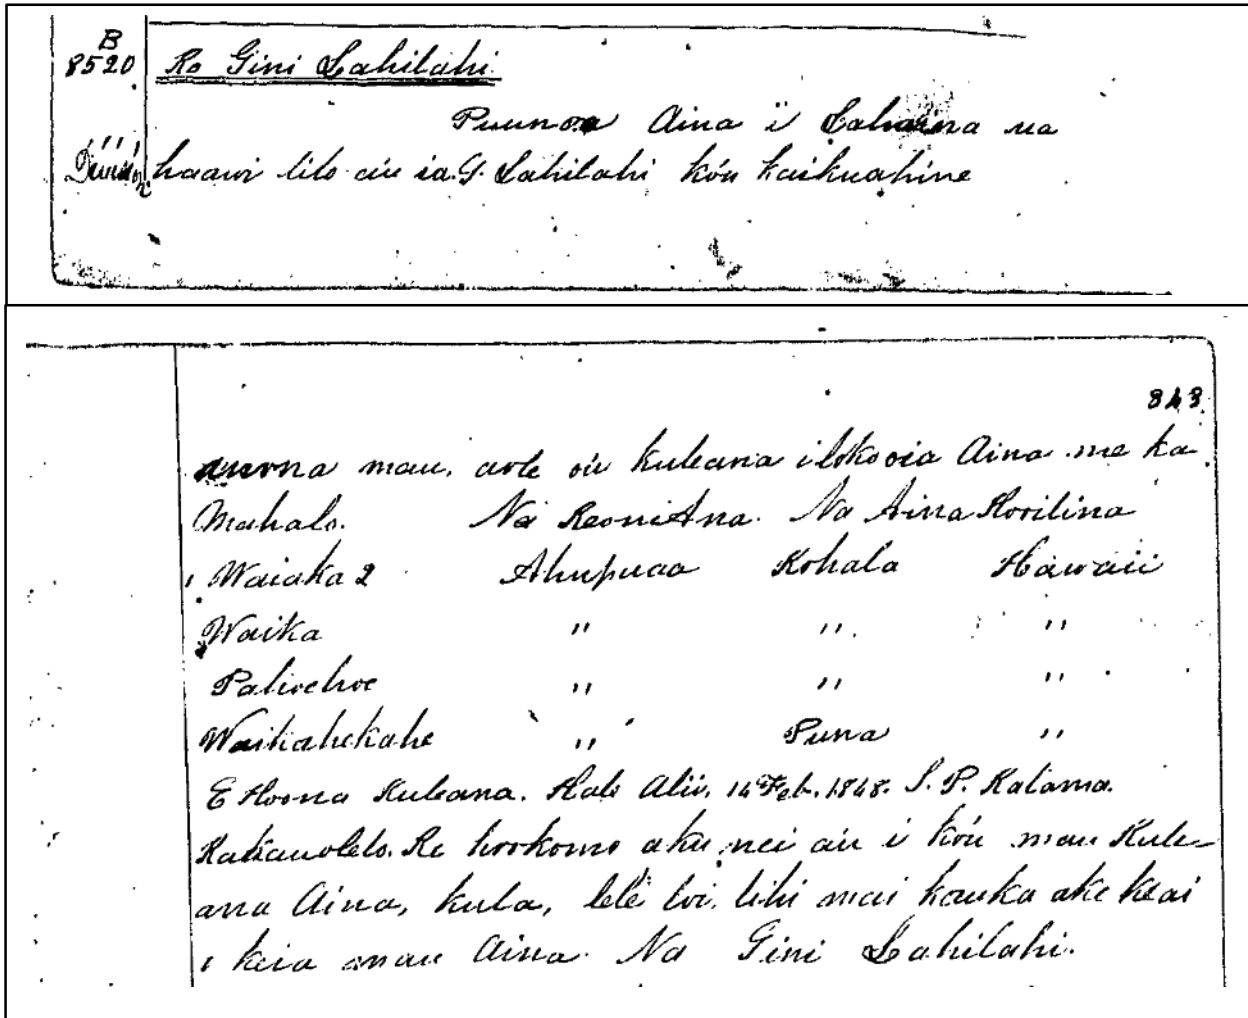 B
8520 Ko Gini Lahilahi.
Puunoa Aina i Lahaina ua
haawi lilo aíu ia G. Lahilahi kóu kaikuahine
843
mau, aole oíu kuleana iloko oia Aina me ka
Mahalo. Na Keoni Ana. Na Aina Hooilina
1 Waiaka 2 Ahupuaa Kohala Hawaii
Waika " " "
Palioehoe " " "
Waikahekahe " Puna "
E Hoona Kuleana. Hale Alii, 14 Feb. 1848. S. P. Kalama.
Kakauolelo. Ke hookomo aku nei aíu i kóu mau Kule-
ana Aina, kula, lele loi, lihi mai kauka a ke kai
i keia mau Aina. Na Gini Lahilahi.